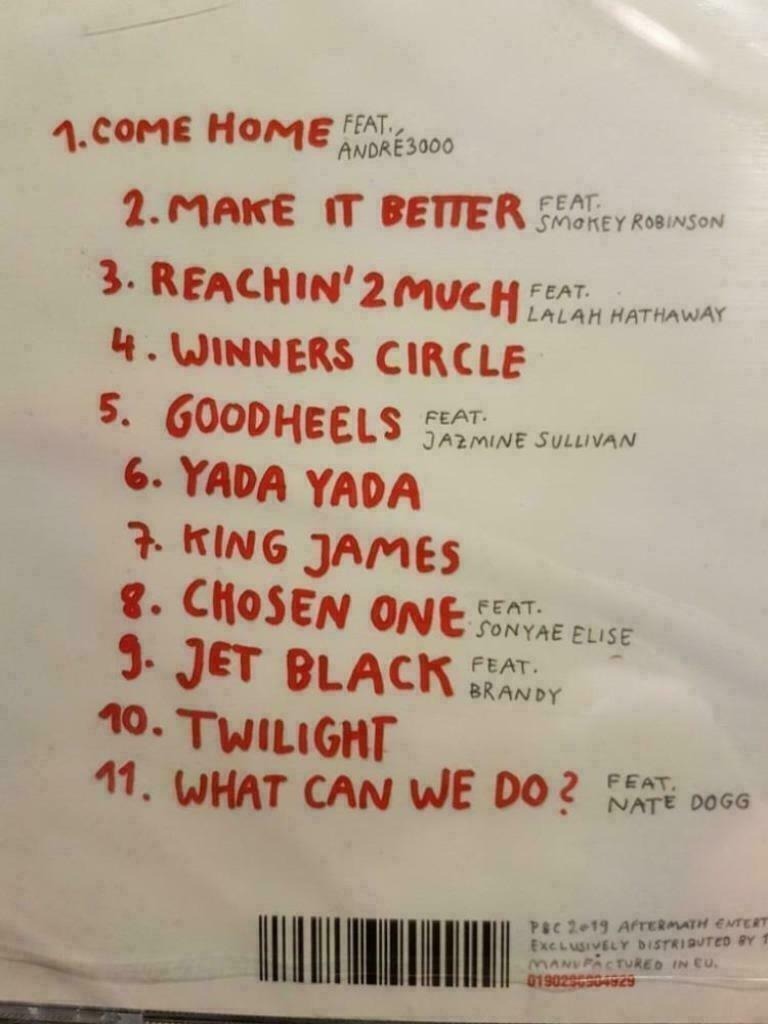 1. COME HOME FEAT. ANDRÉ3000
2. MAKE IT BETTER FEAT. SMOKEY ROBINSON
3. REACHIN' 2 MUCH FEAT. LALAH HATHAWAY
4. WINNERS CIRCLE
5. GOODHEELS FEAT. JAZMINE SULLIVAN
6. YADA YADA
7. KING JAMES
8. CHOSEN ONE FEAT. SONYAE ELISE
9. JET BLACK FEAT. BRANDY
10. TWILIGHT
11. WHAT CAN WE DO? FEAT. NATE DOGG
P&C 2019 AFTERMATH ENTERT
EXCLUSIVELY DISTRIBUTED BY
MANUFACTURED IN EU.